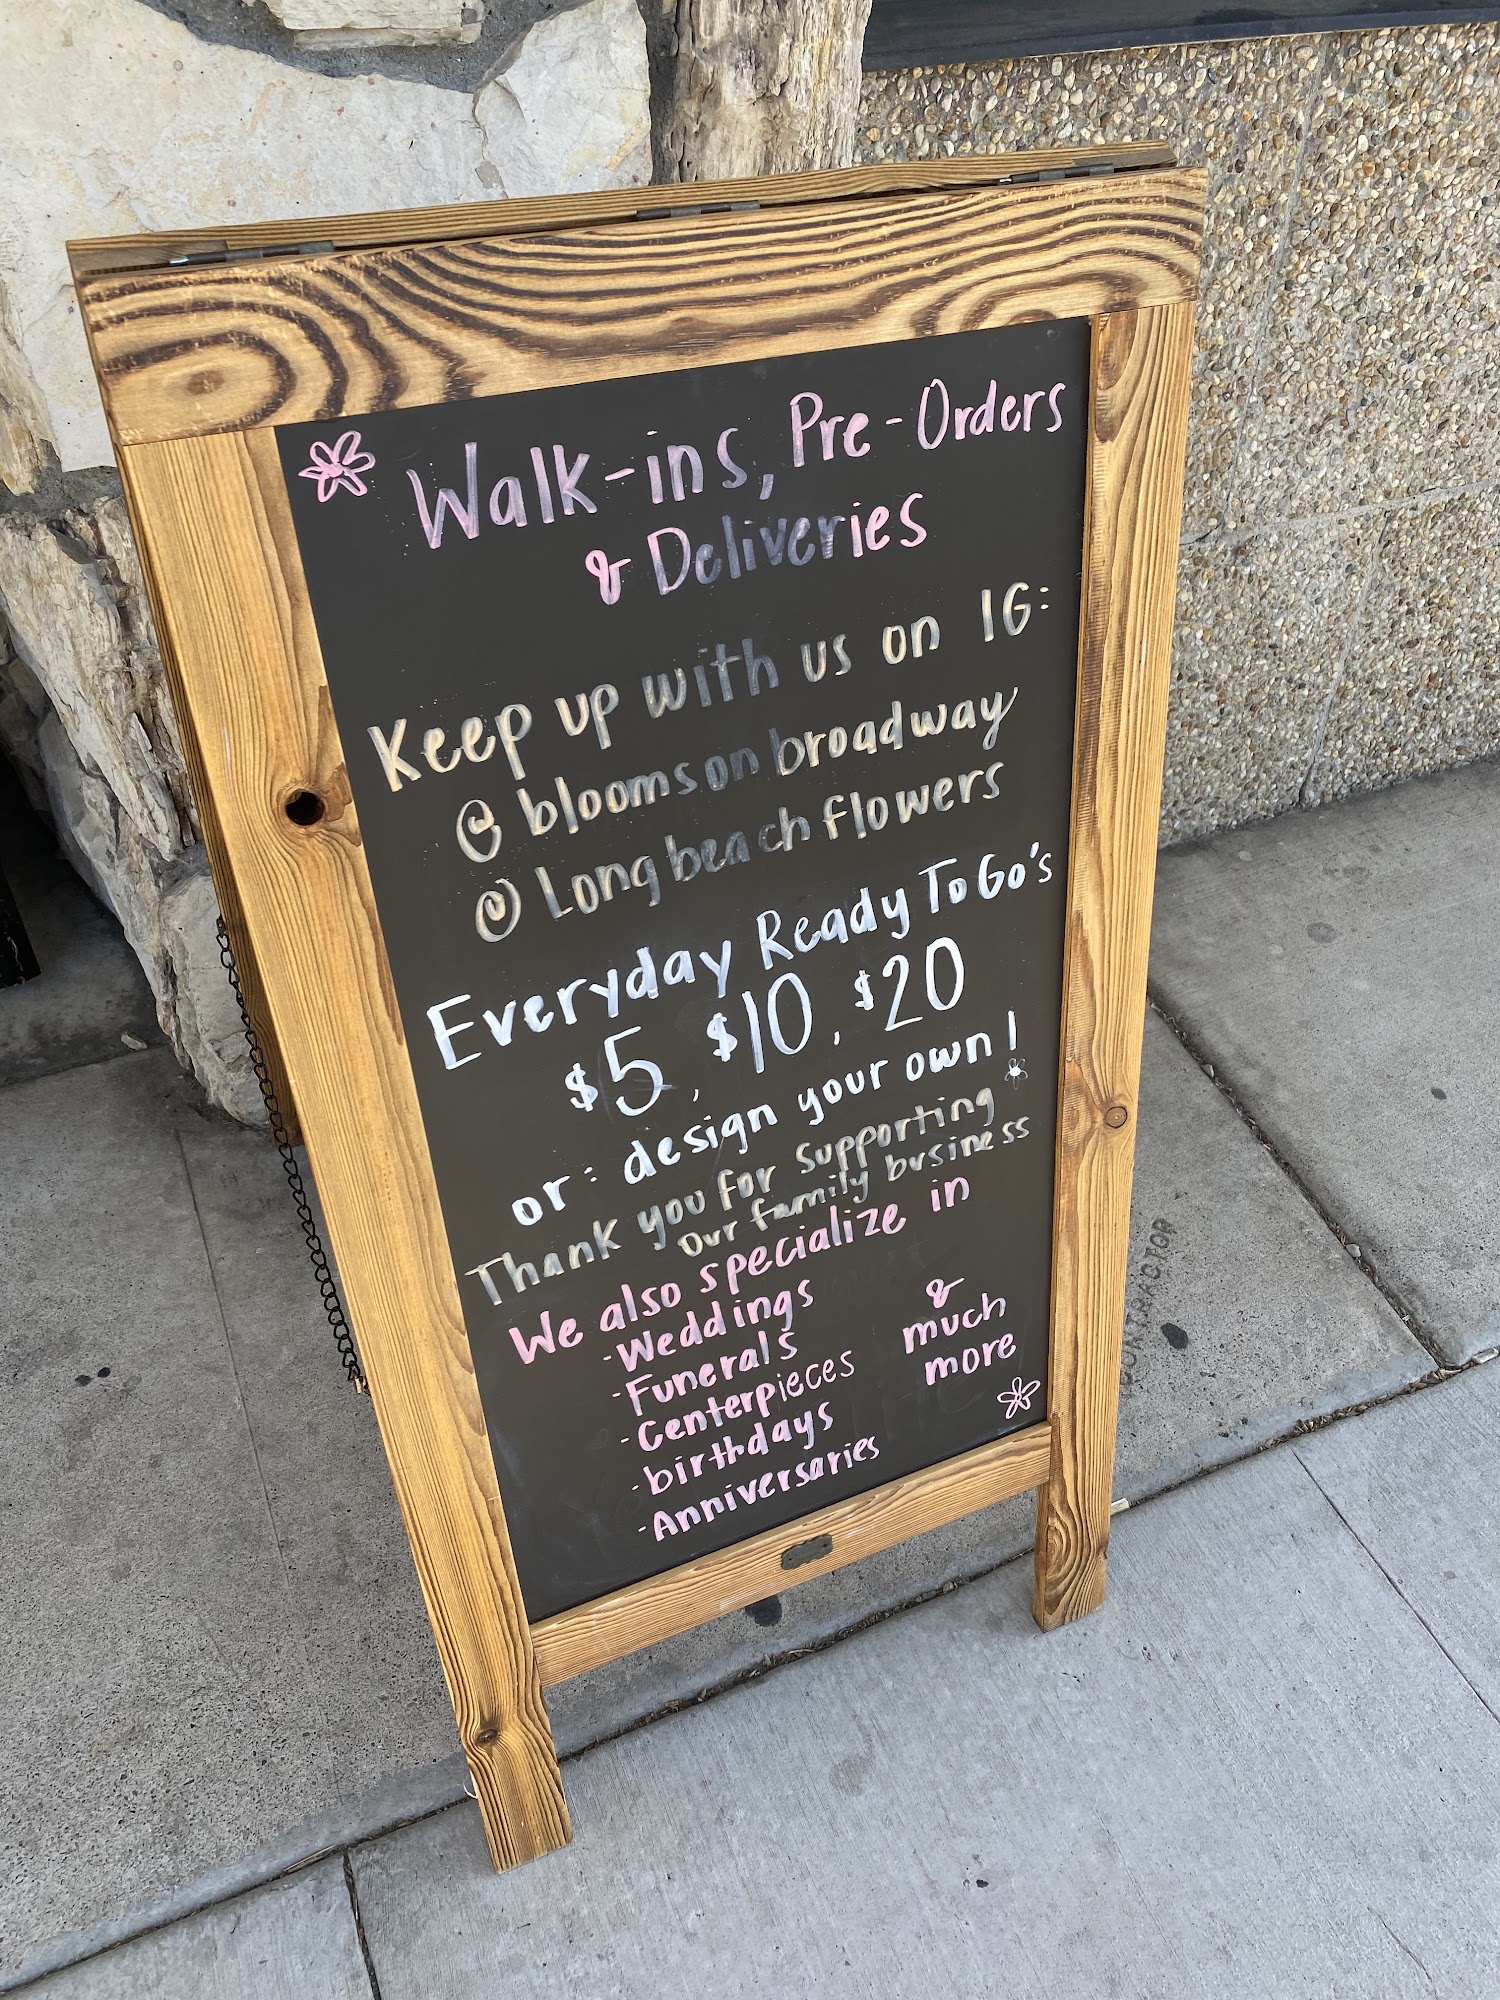 Walk-ins, Pre-Orders
& Deliveries
Keep up with us on IG:
@ bloomsonbroadway
@ Longbeachflowers
Everyday Ready To Go's
$5, $10, $20
or: design your own!
Thank you for supporting
Our family business
We also specialize in
-Weddings
-Funerals
-Centerpieces
-birthdays
-Anniversaries
&
much
more